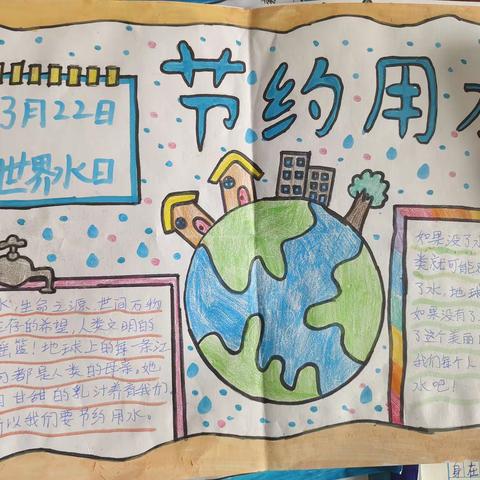 节约用水
3月22日
世界水日
水，生命之源，世间万物
生存的希望，人类文明的
摇篮！地球上的每一条江
河都是人类的母亲，她
用甘甜的乳汁养育我们，
所以我们要节约用水。
如果没了水
类就可能
了水，地球
如果没有了
了这个美丽
我们每个人
水吧！
身在